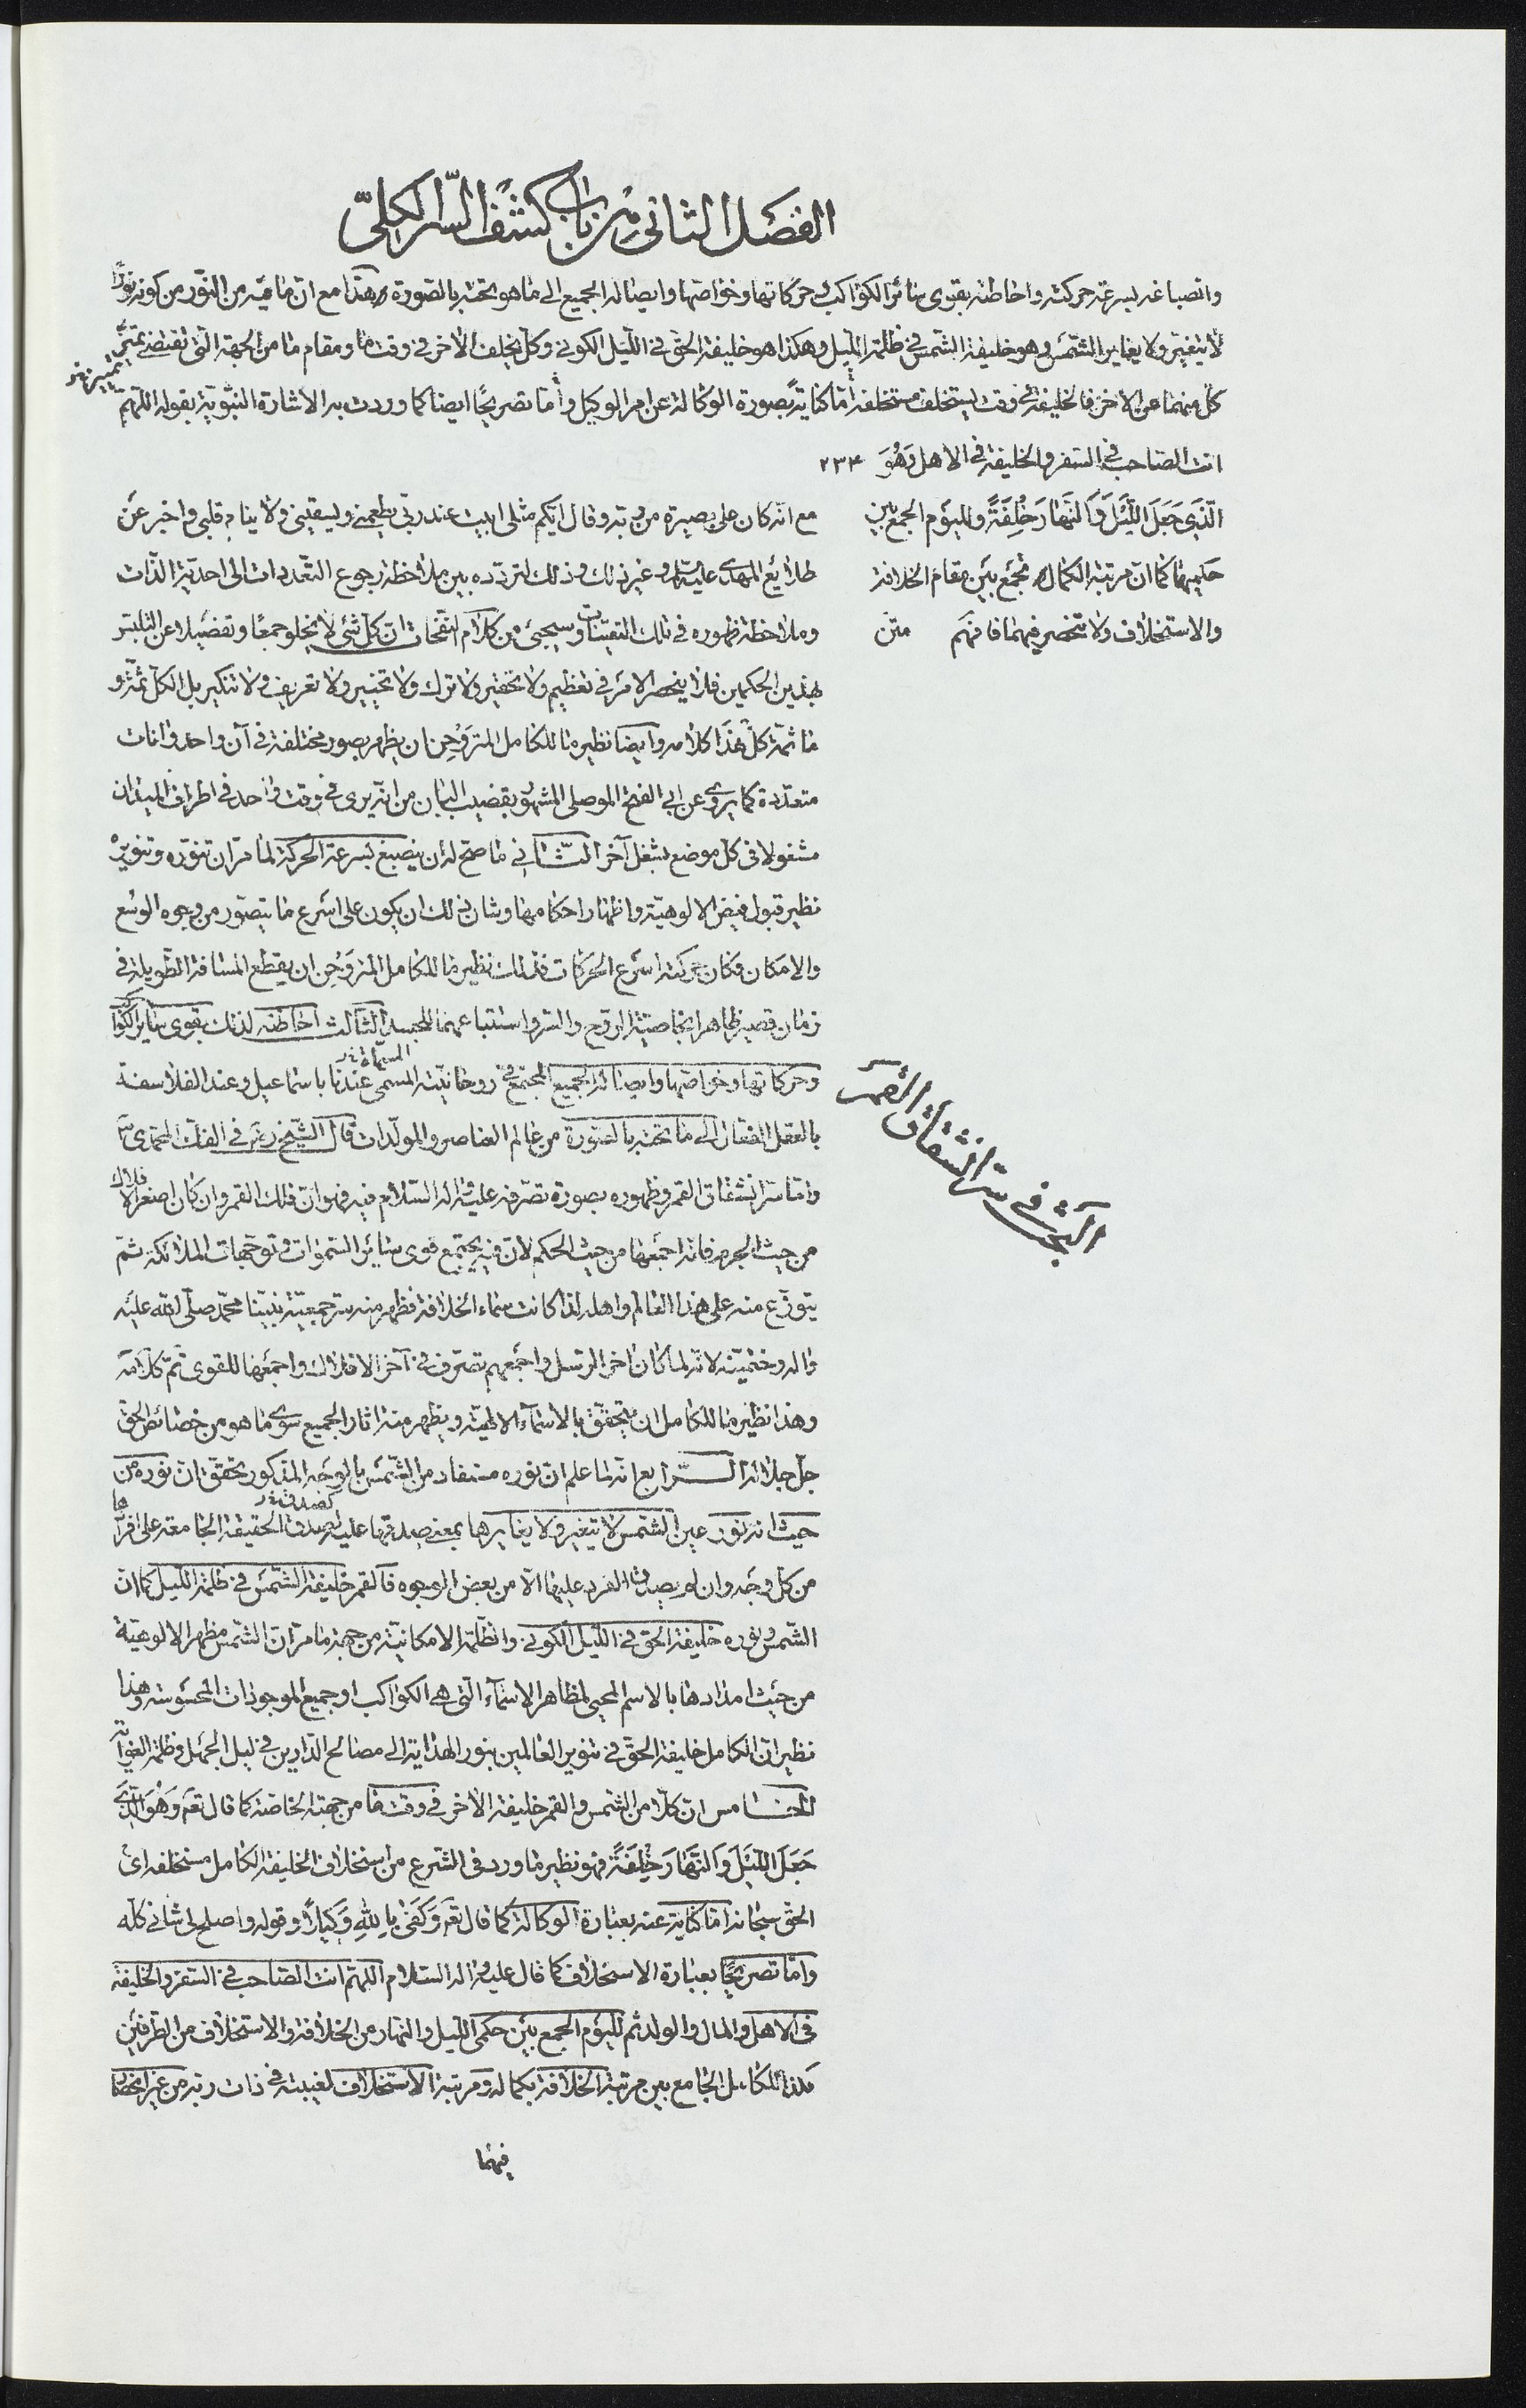 الفصل الثانى من باب كشف السّر الكلىّ
وانصباغه بسرعة حركته واحاطته بقوى سائر الكواكب وحركاتها وخواصّها وايصاله الجميع الى ما هو تحته بالصّورة هذا مع انّ ما فيه من النّور من كونه نورًا
لا يتغيّر ولا يغاير الشّمس وهو خليفة الشّمس فى ظلمة اللّيل وهكذا هو خليفة الحقّ فى اللّيل الكونى وكلّ يخلف الآخر فى وقت ما ومقام ما من الجهة الّتى تقتضى تميّز
تمييز نخ
كلّ منهما عن الآخر فالخليفة فى وقت يستخلف مستخلفه امّا كناية بصورة الوكالة عن امر الوكيل وامّا تصريحًا ايضا كما وردت به الاشارة النّبويّة بقوله اللّهمّ
انت الصّاحب فى السّفر والخليفة فى الاهل وَهُوَ ٢٣٤
الَّذِي جَعَلَ اللَّيْلَ وَالنَّهَارَ خِلْفَةً ولليوم الجمع بين
حكميهما كما انّ مرتبة الكمال تجمع بين مقام الخلافة
والاستخلاف ولا تنحصر فيهما فافهم متن
مع انّه كان على بصيرة من ربّه وقال ايّكم مثلى ابيت عند ربّى يطعمنى ويسقينى ولا ينام قلبى واخبر عن
طلايع المهدى عليه السّلام وغير ذلك وذلك لتردّده بين ملاحظة رجوع التّعدّدات الى احديّة الذّات
وملاحظة ظهوره فى تلك التعيّنات وسيجئ من كلام النّفحات انّ كلّ شئ لا يخلو جمعًا وتفصيلا عن التلبّس
بهذين الحكمين فلا ينحصر الامر فى تعظيم ولا تحقير ولا ترك ولا تخيير ولا تعريف ولا تنكير بل الكلّ ثمّة و
ما ثمّة كلّ هذا كلامه وايضا نظيره ما للكامل المتروحن ان يظهر بصور مختلفة فى آن واحد وآنات
متعدّدة كما يروى عن ابى الفتح الموصلى المشهور بقضيب البان من انّه يرى فى وقت واحد فى اطراف البلدان
مشغولا فى كلّ موضع بشغل آخر الثّانى ما صحّ له ان ينصبغ بسرعة الحركة لما مرّ ان تنوّره وتنويره
نظير قبول فيض الالوهيّة واظهار احكامها وشان ذلك ان يكون على اسرع ما يتصوّر من وجوه الوسع
والامكان فكان حركته اسرع الحركات فذلك نظير ما للكامل المتروحن ان يقطع المسافة الطّويلة فى
زمان قصير ظاهرا بخاصيّة الرّوح والسّر واستتباعهما للجسد الثّالث احاطته لذلك بقوى سائر الكواكب
وحركاتها وخواصّها وايصاله الجميع المجتمع فى روحانيّته المسمّى عندنا باسماعيل وعند الفلاسفة
المسمّاة نخ
بالعقل الفعّال الى ما تحته بالصّورة من عالم العناصر والمولّدات قال الشّيخ رض فى الفكّ المحمّدى ص
وامّا سرّ انشقاق القمر وظهوره بصورة تصرّفه عليه وآله السّلام فيه فهو انّ فلك القمر وان كان اصغر الافلاك
البحث فى سرّ انشقاق القمر
من حيث الجرم فانّه اجمعها من حيث الحكم لانّ فيه يجتمع قوى سائر السّموات وتوجّهات الملائكة ثمّ
يتوزّع منه على هذا العالم واهله لذا كانت سماء الخلافة فظهر منه سرّ جمعيّة نبيّنا محمّد صلّى الله عليه
وآله وختميّته لانّه لما كان آخر الرّسل واجمعهم تصرّف فى آخر الافلاك واجمعها للقوى تمّ كلامه
وهذا نظير ما للكامل ان يتحقّق بالاسمآء الالهيّة ويظهر منه آثار الجميع سوى ما هو من خصائص الحقّ
جلّ جلاله الرّابع انّه لما علم ان نوره مستفاد من الشّمس بالوجه المذكور تحقّق ان نوره من
حيث انّه نور عين الشّمس لا يتغيّر ولا يغايرها بمعنى صدقها عليه لصدق الحقيقة الجامعة على افرادها
كصدق نخ
من كلّ وجه وان لم يصدق الفرد عليها الّا من بعض الوجوه فالقمر خليفة الشّمس فى ظلمة اللّيل كما انّ
الشّمس ونوره خليفة الحقّ فى اللّيل الكونى والظّلمة الامكانيّة من جهة ما مرّ انّ الشّمس مظهر الالوهيّة
من حيث امدادها بالاسم المحيى لمظاهر الاسمآء الّتى هى الكواكب او جميع الموجودات المحسوسة وهذا
نظير انّ الكامل خليفة الحقّ فى تنوير العالمين بنور الهداية الى مصالح الدّارين فى ليل الجهل وظلمة الغواية
الخامس انّ كلّا من الشّمس والقمر خليفة الآخر فى وقت ما من جهته الخاصّة كما قال تعَ وَهُوَ الَّذِي
جَعَلَ اللَّيْلَ وَالنَّهَارَ خِلْفَةً فهو نظير ما ورد فى الشّرع من استخلاف الخليفة الكامل مستخلفه اى
الحقّ سبحانه امّا كناية عنه بعبارة الوكالة كما قال تعَ وَكَفَىٰ بِاللَّهِ وَكِيلًا وقوله واصلح لى شانى كلّه
وامّا تصريحًا بعبارة الاستخلاف كما قال عليه وآله السّلام اللّهمّ انت الصّاحب فى السّفر والخليفة
فى الاهل والمال والولد ثمّ لليوم الجمع بين حكمى اللّيل والنّهار من الخلافة والاستخلاف من الطّرفين
فكذا للكامل الجامع بين مرتبة الخلافة بكماله ومرتبة الاستخلاف لغيبته فى ذات ربّه من غير انحصار
فيهما